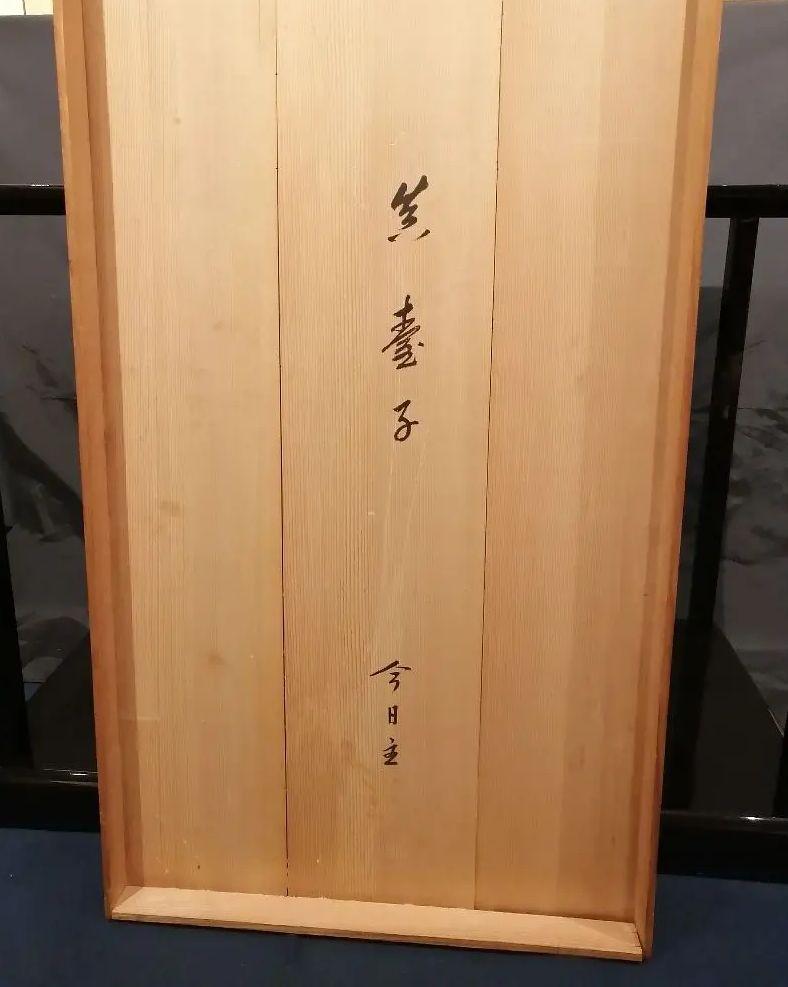 真臺子
今日主